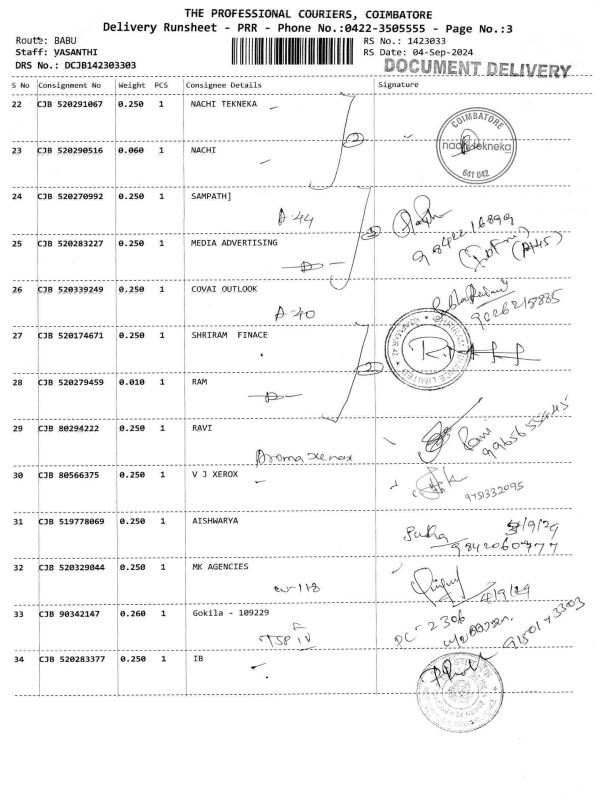 THE PROFESSIONAL COURIERS, COIMBATORE
Delivery Runsheet - PRR - Phone No.:0422-3505555 - Page No.:3
Route: BABU
RS No.: 1423033
Staff: YASANTHI
RS Date: 04-Sep-2024
DRS No.: DCJB142303303
DOCUMENT DELIVERY
S No Consignment No Weight PCS Consignee Details Signature
22 CJB 520291067 0.250 1 NACHI TEKNEKA
2
COIMBATORE
641 042
23 CJB 520290516 0.060 1 NACHI
24 CJB 520270992 0.250 1 SAMPATH]
A-44
25 CJB 520283227 0.250 1 MEDIA ADVERTISING
26 CJB 520339249 0.250 1 COVAI OUTLOOK
A-40
27 CJB 520174671 0.250 1 SHRIRAM FINACE
2
28 CJB 520279459 0.010 1 RAM
29 CJB 80294222 0.250 1 RAVI
Ram
Aroma xerox
30 CJB 80566375 0.250 1 V J XEROX
9751332095
31 CJB 519778069 0.250 1 AISHWARYA
32 CJB 520329044 0.250 1 MK AGENCIES
4/9/24
33 CJB 90342147 0.260 1 Gokila - 109229
PC-2306
34 CJB 520283377 0.250 1 IB